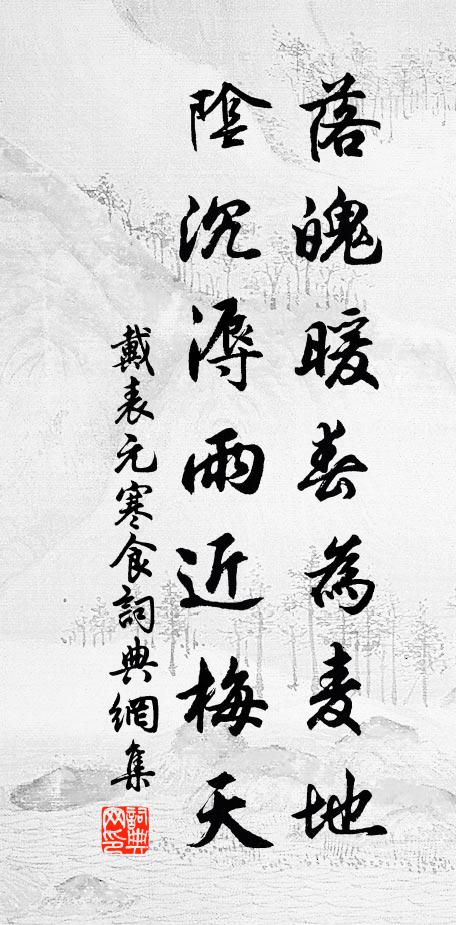 落魄暖春為麦地
陰沉潯雨近梅天
戴表元寒食詞典網集
詞典网印